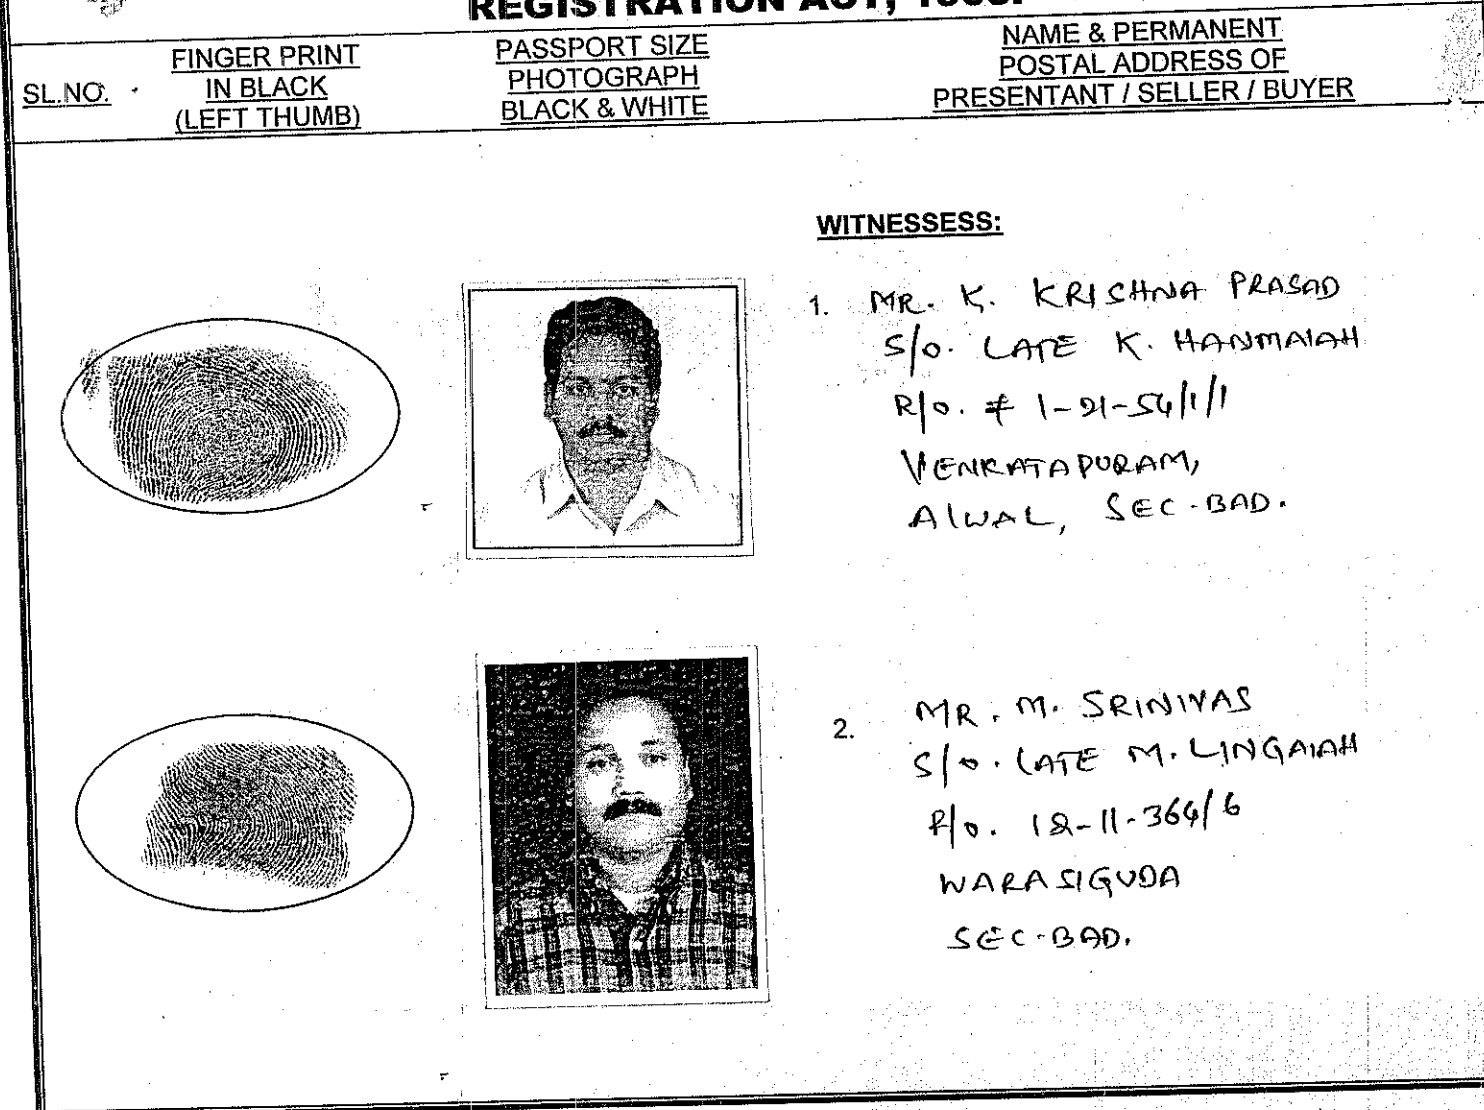 REGISTRATION ACT, 1908.
SL.NO.
FINGER PRINT
IN BLACK
(LEFT THUMB)
PASSPORT SIZE
PHOTOGRAPH
BLACK & WHITE
NAME & PERMANENT
POSTAL ADDRESS OF
PRESENTANT / SELLER / BUYER
WITNESSESS:
1. MR. K. KRISHNA PRASAD
S/o. LATE K. HANMAIAH
R/o. # 1-21-54/1/1
VENKATAPURAM,
Alwal, SEC-BAD.
2. MR. M. SRINIVAS
S/o. LATE M. LINGAIAH
R/o. 12-11-364/6
WARASIGUDA
SEC-BAD.